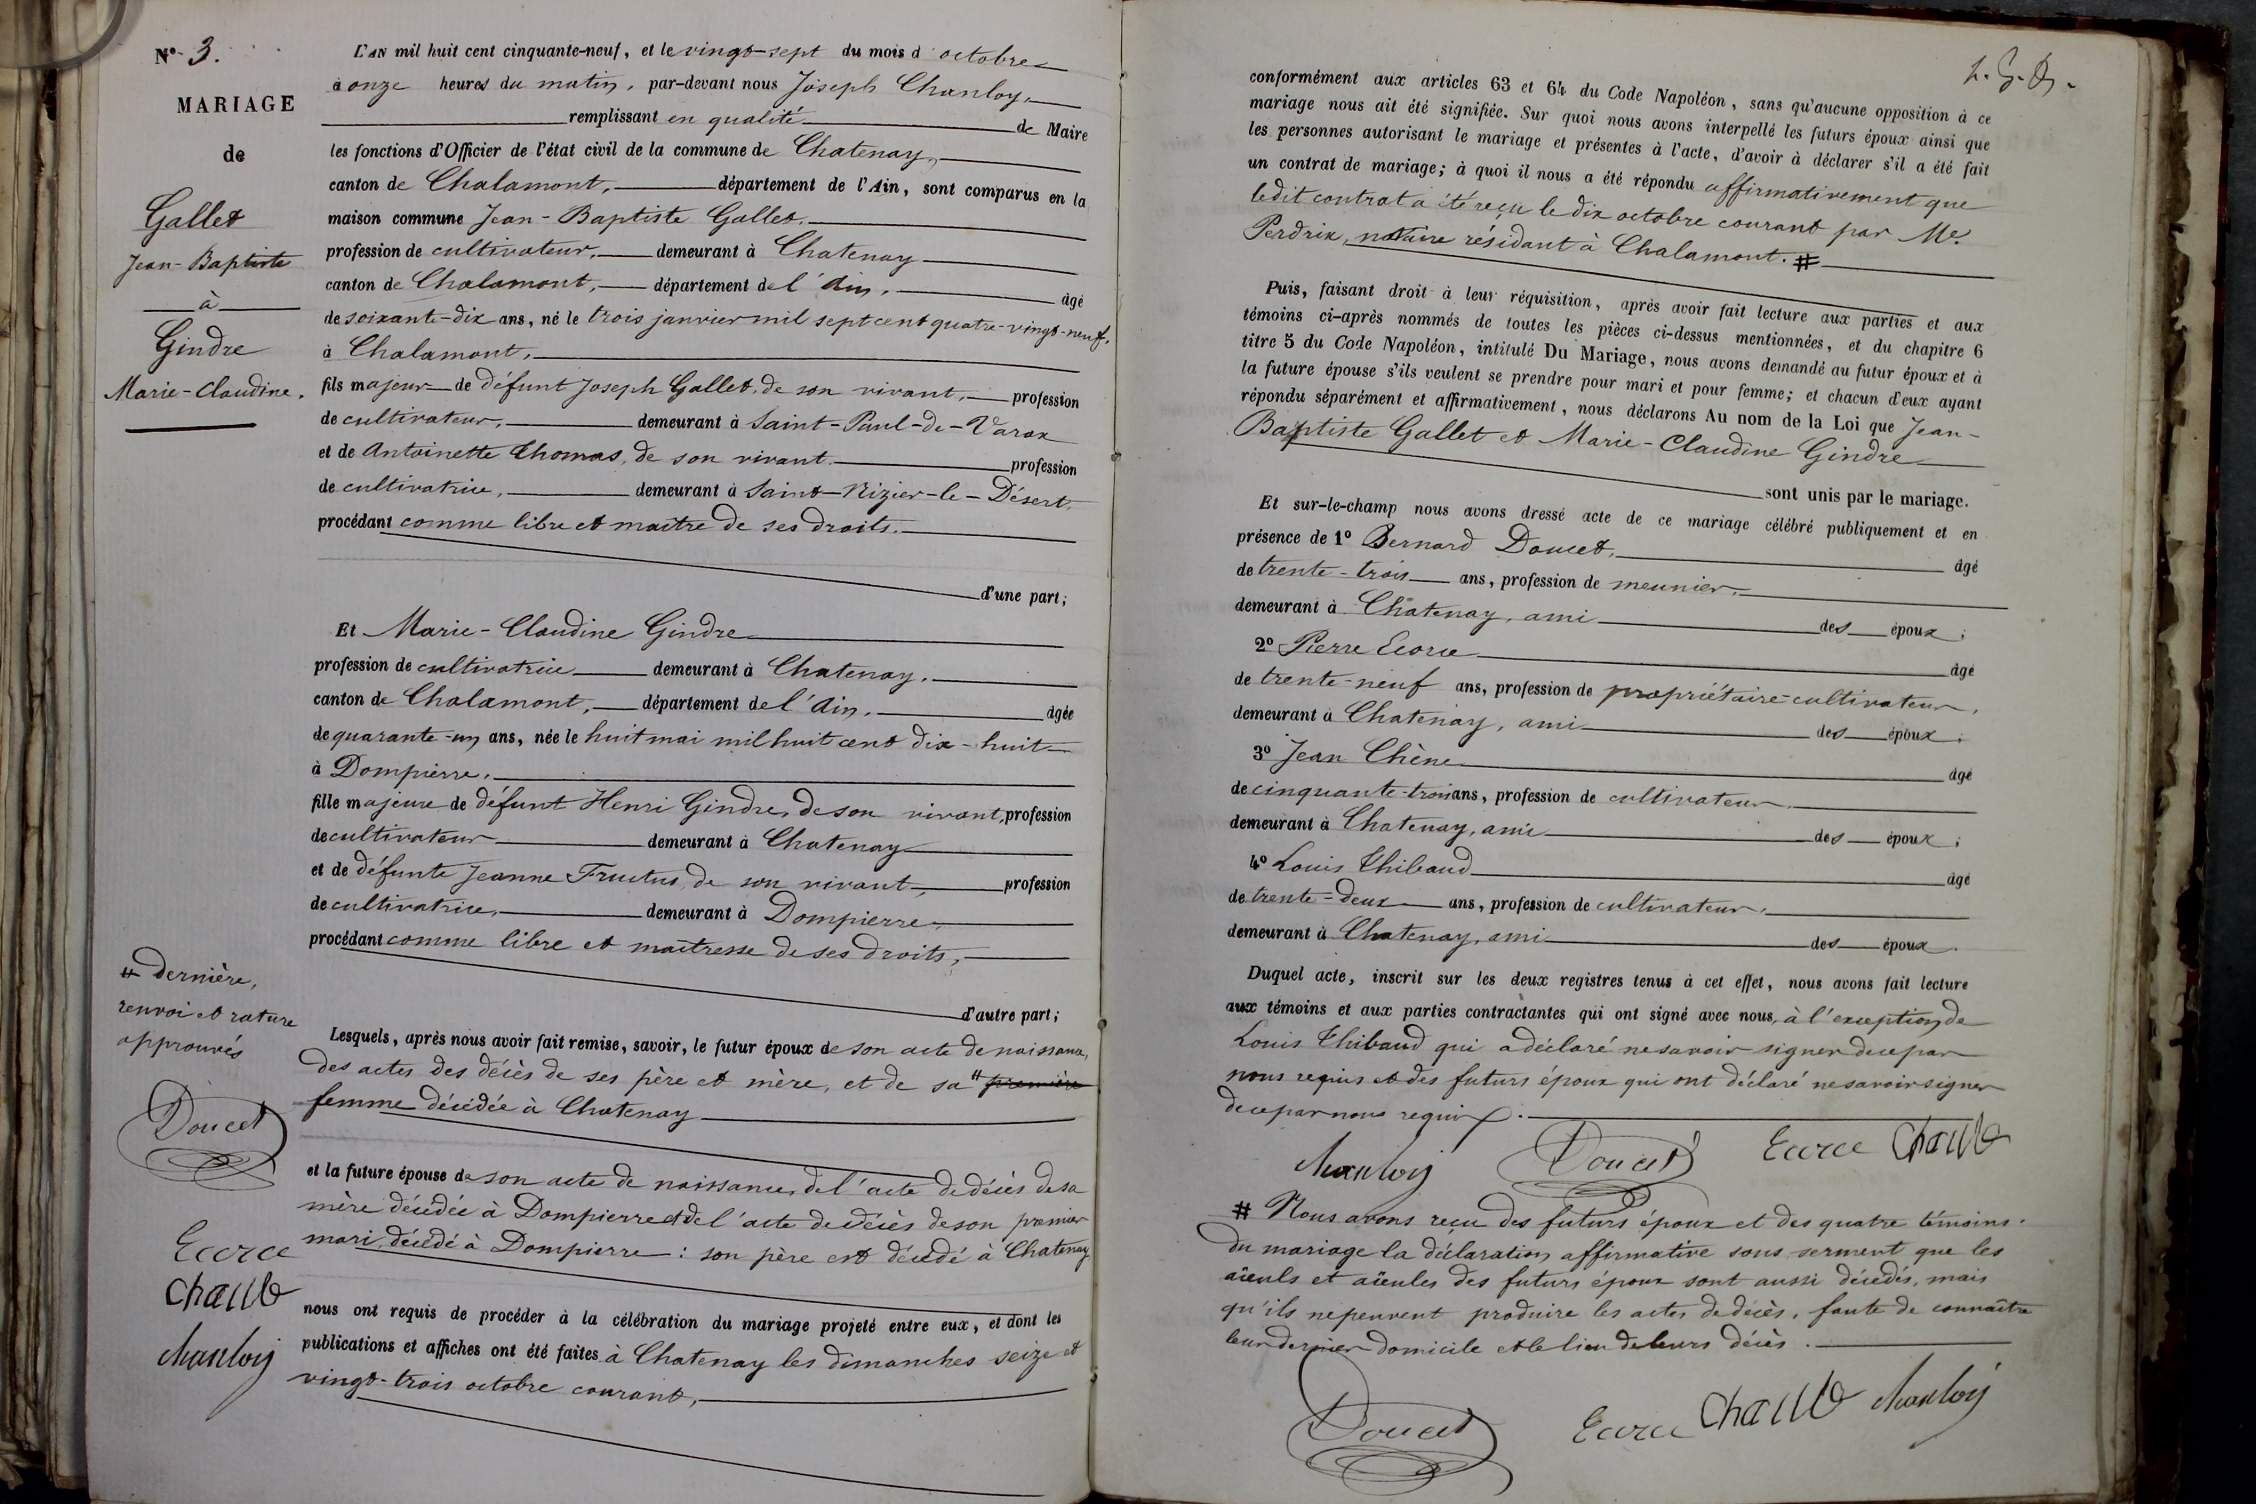 N° 3.
MARIAGE
de
Gallet
Jean-Baptiste
à
Gindre
Marie-Claudine.
L'AN mil huit cent cinquante-neuf, et le vingt-sept du mois d'octobre
à onze heures du matin, par-devant nous Joseph Chanloy,
remplissant en qualité de Maire
les fonctions d'Officier de l'état civil de la commune de Chatenay,
canton de Chalamont, département de l'Ain, sont comparus en la
maison commune Jean-Baptiste Gallet
profession de cultivateur, demeurant à Chatenay
canton de Chalamont, département de l'Ain, âgé
de soixante-dix ans, né le trois janvier mil sept cent quatre-vingt-neuf,
à Chalamont,
fils majeur de défunt Joseph Gallet, de son vivant, profession
de cultivateur, demeurant à Saint-Paul-de-Varax
et de Antoinette Thomas, de son vivant profession
de cultivatrice, demeurant à Saint-Nizier-le-Désert,
procédant comme libre et maître de ses droits.
d'une part;
Et Marie-Claudine Gindre
profession de cultivatrice demeurant à Chatenay,
canton de Chalamont, département de l'Ain, âgée
de quarante-un ans, née le huit mai mil huit cent dix-huit
à Dompierre,
fille majeure de défunt Henri Gindre, de son vivant, profession
de cultivateur demeurant à Chatenay
et de défunte Jeanne Fructus, de son vivant, profession
de cultivatrice, demeurant à Dompierre,
procédant comme libre et maîtresse de ses droits,
d'autre part;
# dernière,
renvoi et rature
approuvés
Doucet
Ecorce
Chanloy
Lesquels, après nous avoir fait remise, savoir, le futur époux de son acte de naissance,
des actes des décès de ses père et mère, et de sa # première
femme décédée à Chatenay
et la future épouse de son acte de naissance, de l'acte de décès de sa
mère décédée à Dompierre et de l'acte de décès de son premier
mari, décédé à Dompierre : son père est décédé à Chatenay
nous ont requis de procéder à la célébration du mariage projeté entre eux, et dont les
publications et affiches ont été faites à Chatenay les dimanches seize et
vingt-trois octobre courant,
conformément aux articles 63 et 64 du Code Napoléon, sans qu'aucune opposition à ce
mariage nous ait été signifiée. Sur quoi nous avons interpellé les futurs époux ainsi que
les personnes autorisant le mariage et présentes à l'acte, d'avoir à déclarer s'il a été fait
un contrat de mariage; à quoi il nous a été répondu affirmativement que
ledit contrat a été reçu le dix octobre courant par Me.
Perdrix, notaire résidant à Chalamont. #
Puis, faisant droit à leur réquisition, après avoir fait lecture aux parties et aux
témoins ci-après nommés de toutes les pièces ci-dessus mentionnées, et du chapitre 6
titre 5 du Code Napoléon, intitulé Du Mariage, nous avons demandé au futur époux et à
la future épouse s'ils veulent se prendre pour mari et pour femme; et chacun d'eux ayant
répondu séparément et affirmativement, nous déclarons Au nom de la Loi que Jean-
Baptiste Gallet et Marie-Claudine Gindre
sont unis par le mariage.
Et sur-le-champ nous avons dressé acte de ce mariage célébré publiquement et en
présence de 1° Bernard Doucet, âgé
de trente-trois ans, profession de meunier,
demeurant à Chatenay, ami des époux;
2° Pierre Ecorce âgé
de trente-neuf ans, profession de propriétaire-cultivateur,
demeurant à Chatenay, ami des époux;
3° Jean Chêne âgé
de cinquante-trois ans, profession de cultivateur
demeurant à Chatenay, ami des époux;
4° Louis Thibaud âgé
de trente-deux ans, profession de cultivateur,
demeurant à Chatenay, ami des époux.
Duquel acte, inscrit sur les deux registres tenus à cet effet, nous avons fait lecture
aux témoins et aux parties contractantes qui ont signé avec nous, à l'exception de
Louis Thibaud qui a déclaré ne savoir signer de ce par
nous requis et des futurs époux qui ont déclaré ne savoir signer
de ce par nous requis.
Chanloy Doucet Ecorce
# Nous avons reçu des futurs époux et des quatre témoins
du mariage la déclaration affirmative sous serment que les
aïeuls et aïeules des futurs époux sont aussi décédés, mais
qu'ils ne peuvent produire les actes de décès, faute de connaître
leur dernier domicile et le lieu de leurs décès.
Doucet Ecorce Chanloy